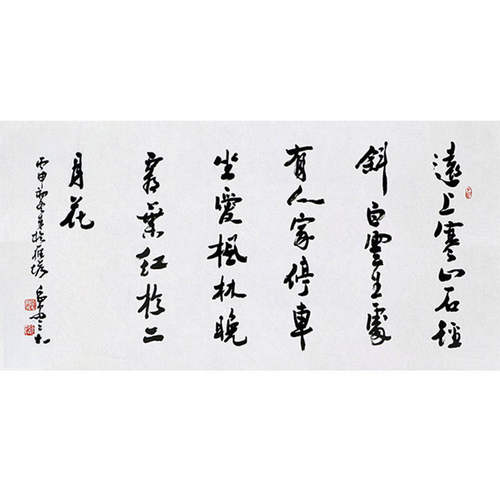 遠上寒山石徑
斜白雲生處
有人家停車
坐愛楓林晚
霜葉紅於二
月花
丙申 於雁塔